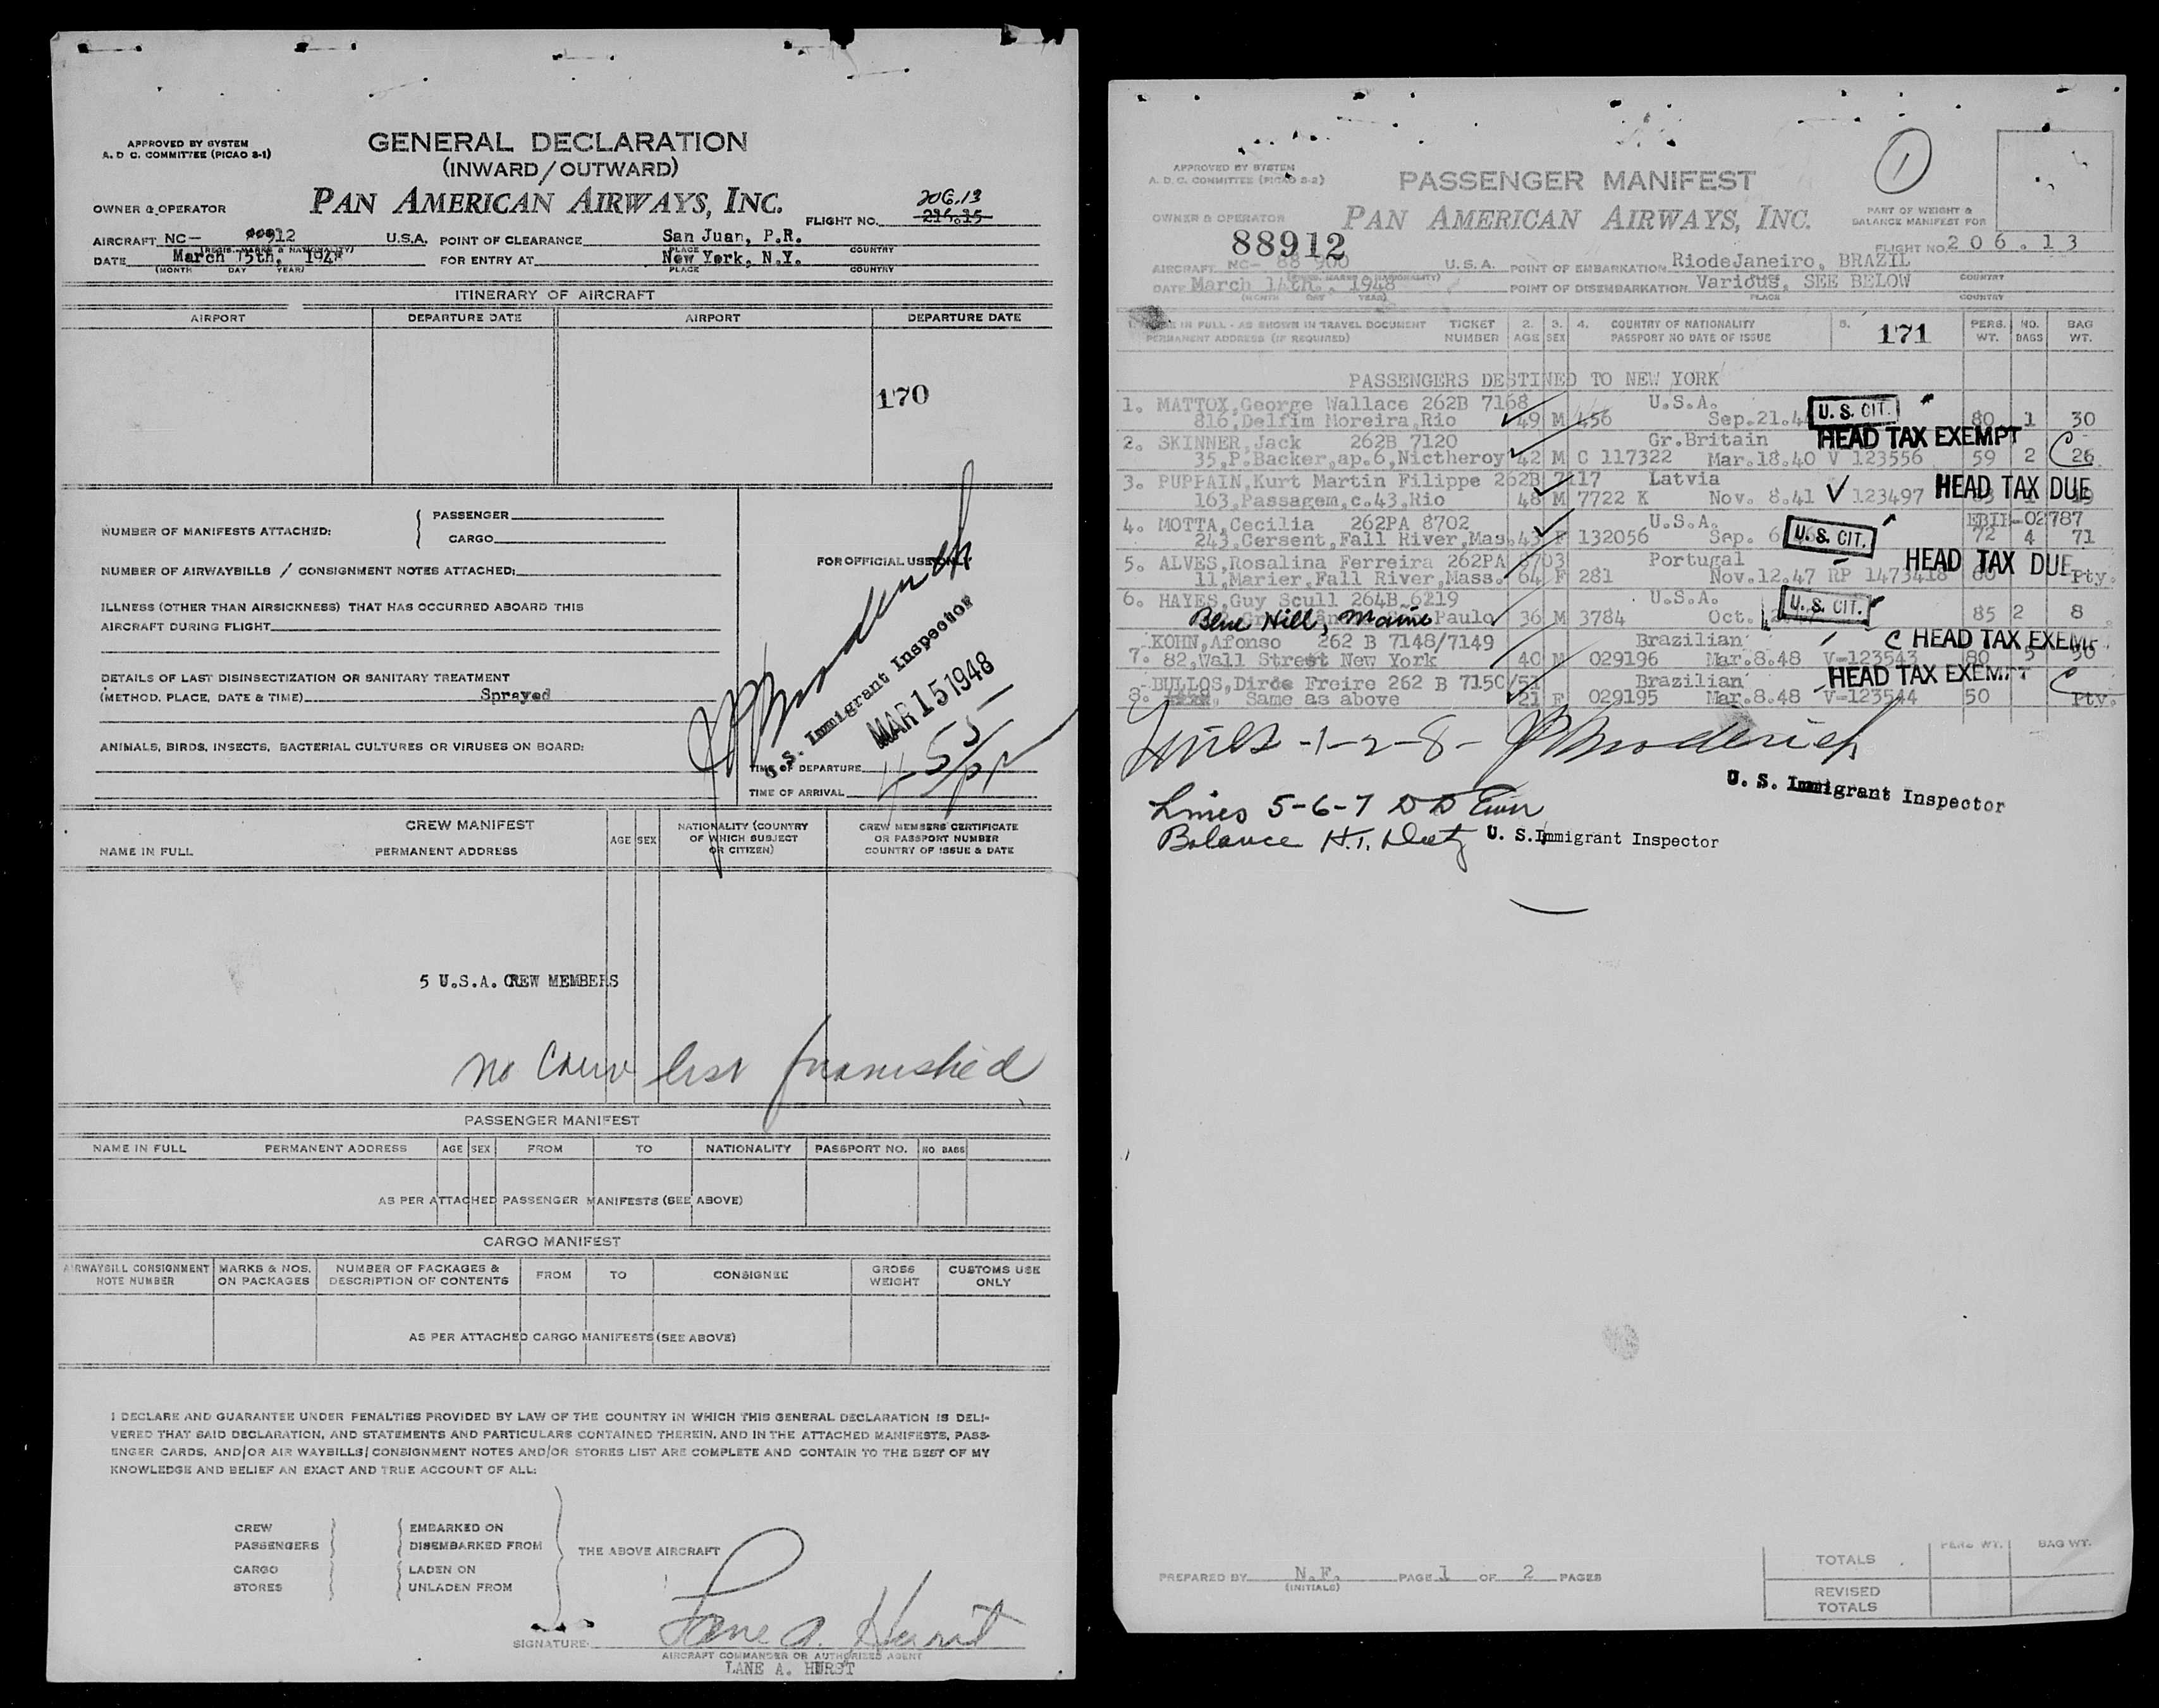 APPROVED BY SYSTEM
A. D C. COMMITTEE (PICAO S-1)
GENERAL DECLARATION
(INWARD/OUTWARD)
OWNER & OPERATOR
PAN AMERICAN AIRWAYS, INC.
FLIGHT NO. 206.13
AIRCRAFT NC- 912 U.S.A. POINT OF CLEARANCE San Juan, P.R.
(REGIS. MARKS & NATIONALITY) PLACE COUNTRY
DATE March 15th, FOR ENTRY AT New York, N.Y.
(MONTH DAY YEAR) PLACE COUNTRY
ITINERARY OF AIRCRAFT
AIRPORT DEPARTURE DATE AIRPORT DEPARTURE DATE
170
NUMBER OF MANIFESTS ATTACHED: PASSENGER
CARGO
FOR OFFICIAL USE ONLY
NUMBER OF AIRWAYBILLS / CONSIGNMENT NOTES ATTACHED:
ILLNESS (OTHER THAN AIRSICKNESS) THAT HAS OCCURRED ABOARD THIS
AIRCRAFT DURING FLIGHT
DETAILS OF LAST DISINSECTIZATION OR SANITARY TREATMENT
(METHOD, PLACE, DATE & TIME) Sprayed
ANIMALS, BIRDS, INSECTS, BACTERIAL CULTURES OR VIRUSES ON BOARD:
JP Broderick
U.S. Immigrant Inspector
MAR 15 1948
TIME OF DEPARTURE
TIME OF ARRIVAL
CREW MANIFEST
NAME IN FULL PERMANENT ADDRESS AGE SEX
NATIONALITY (COUNTRY
OF WHICH SUBJECT
OR CITIZEN)
CREW MEMBERS CERTIFICATE
OR PASSPORT NUMBER
COUNTRY OF ISSUE & DATE
5 U.S.A. CREW MEMBERS
No Crew list furnished
PASSENGER MANIFEST
NAME IN FULL PERMANENT ADDRESS AGE SEX FROM TO NATIONALITY PASSPORT NO. NO BAGS
AS PER ATTACHED PASSENGER MANIFESTS (SEE ABOVE)
CARGO MANIFEST
AIRWAYBILL CONSIGNMENT
NOTE NUMBER
MARKS & NOS.
ON PACKAGES
NUMBER OF PACKAGES &
DESCRIPTION OF CONTENTS
FROM TO CONSIGNEE
GROSS
WEIGHT
CUSTOMS USE
ONLY
AS PER ATTACHED CARGO MANIFESTS (SEE ABOVE)
I DECLARE AND GUARANTEE UNDER PENALTIES PROVIDED BY LAW OF THE COUNTRY IN WHICH THIS GENERAL DECLARATION IS DELI-
VERED THAT SAID DECLARATION, AND STATEMENTS AND PARTICULARS CONTAINED THEREIN, AND IN THE ATTACHED MANIFESTS, PASS-
ENGER CARDS, AND/OR AIR WAYBILLS/CONSIGNMENT NOTES AND/OR STORES LIST ARE COMPLETE AND CONTAIN TO THE BEST OF MY
KNOWLEDGE AND BELIEF AN EXACT AND TRUE ACCOUNT OF ALL:
CREW EMBARKED ON
PASSENGERS DISEMBARKED FROM
THE ABOVE AIRCRAFT
CARGO LADEN ON
STORES UNLADEN FROM
SIGNATURE: Lane A. Hurst
AIRCRAFT COMMANDER OR AUTHORIZED AGENT
LANE A. HURST
APPROVED BY SYSTEM
A. D. C. COMMITTEE (PICAO S-2)
PASSENGER MANIFEST
1
OWNER & OPERATOR
PAN AMERICAN AIRWAYS, INC.
PART OF WEIGHT &
BALANCE MANIFEST FOR
FLIGHT NO. 206.13
88912
AIRCRAFT NC- 88 900 U.S.A. POINT OF EMBARKATION RiodeJaneiro, BRAZIL
COUNTRY
DATE March 14th., 1948 POINT OF DISEMBARKATION Various, SEE BELOW
(MONTH DAY YEAR) PLACE COUNTRY
1. NAME IN FULL - AS SHOWN IN TRAVEL DOCUMENT TICKET 2. 3. 4. COUNTRY OF NATIONALITY 5. 171 PERS. NO. BAG
PERMANENT ADDRESS (IF REQUIRED) NUMBER AGE SEX PASSPORT NO DATE OF ISSUE WT. BAGS WT.
PASSENGERS DESTINED TO NEW YORK
1. MATTOX,George Wallace 262B 7168 U.S.A. U.S. CIT.
816,Delfim Moreira,Rio 49 M 456 Sep.21.4 80 1 30
2. SKINNER,Jack 262B 7120 Gr.Britain HEAD TAX EXEMPT
35,P.Backer,ap.6,Nictheroy 42 M C 117322 Mar.18.40 V 123556 59 2 26
3. PUPPAIN,Kurt Martin Filippe 262B 7117 Latvia HEAD TAX DUE
163,Passagem,c.43,Rio 48 M 7722 K Nov. 8.41 V 123497
4. MOTTA,Cecilia 262PA 8702 U.S.A. U.S. CIT. EBII-02787
243,Cersent,Fall River,Mas. 43 F 132056 Sep. 6 72 4 71
5. ALVES,Rosalina Ferreira 262PA 8703 Portugal HEAD TAX DUE
11,Marier,Fall River,Mass. 64 F 281 Nov.12.47 RP 1473418 60 Pty.
6. HAYES,Guy Scull 264B 6219 U.S.A. U.S. CIT.
Blue Hill, Maine Paulo 36 M 3784 Oct. 85 2 8
KOHN,Afonso 262 B 7148/7149 Brazilian C HEAD TAX EXEMP
7. 82,Wall Street New York 40 M 029196 Mar.8.48 V-123543 80 5 50
BULLOS,Dirce Freire 262 B 7150/51 Brazilian HEAD TAX EXEMPT
8. Same as above 21 F 029195 Mar.8.48 V-123544 50 Pty.
Lines -1-2-8- JP Broderick
U. S. Immigrant Inspector
Lines 5-6-7 D D
Balance H.T. U. S. Immigrant Inspector
PREPARED BY N.F. PAGE 1 OF 2 PAGES
(INITIALS)
PERS WT. BAG WT.
TOTALS
REVISED
TOTALS